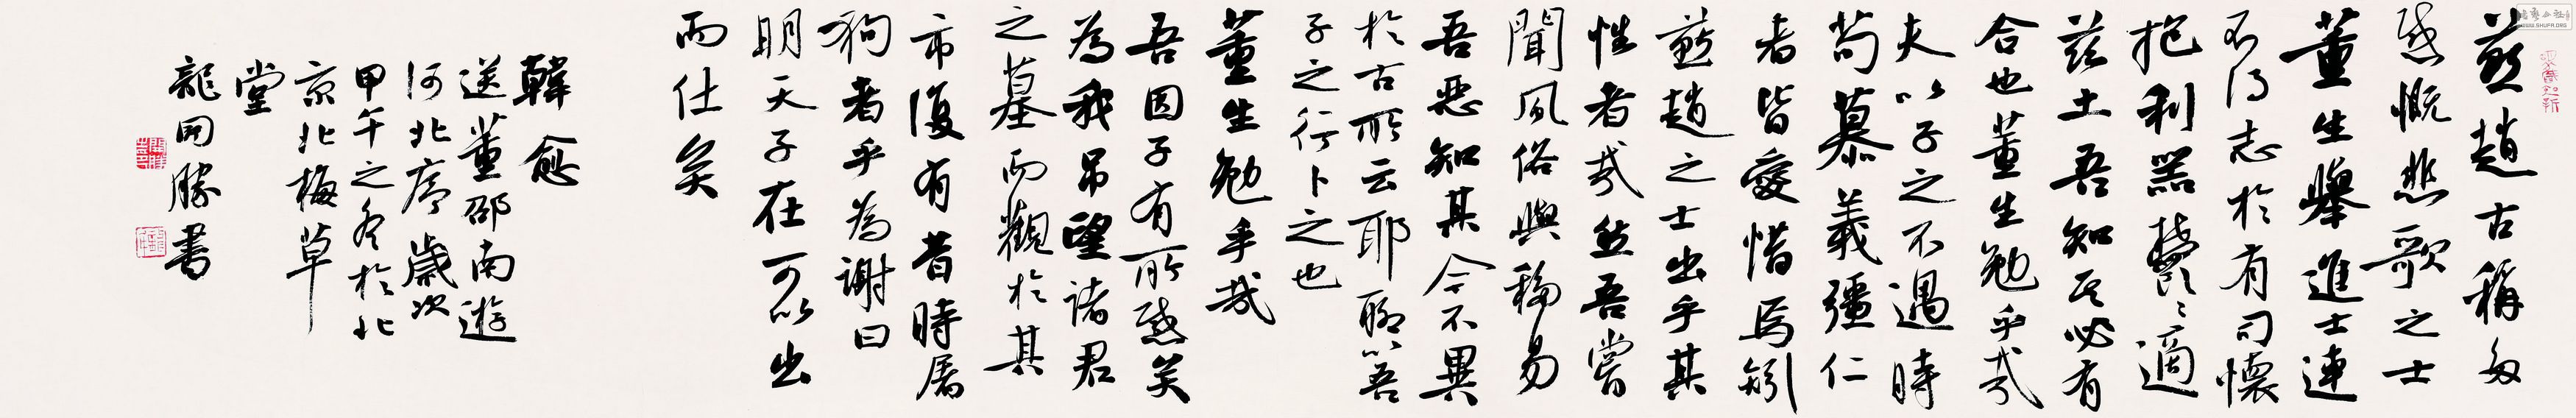 燕趙古稱多
感慨悲歌之士
董生舉進士連
不得志於有司懷
抱利器鬱鬱適
茲土吾知其必有
合也董生勉乎哉
夫以子之不遇時
苟慕義彊仁
者皆愛惜焉矧
燕趙之士出乎其
性者哉然吾嘗
聞風俗與移易
吾惡知其今不異
於古所云耶聊以吾
子之行卜之也
董生勉乎哉
吾因子有所感矣
為我弔望諸君
之墓而觀於其
市復有昔時屠
狗者乎為謝曰
明天子在可以出
而仕矣
韓愈
送董邵南遊
河北序歲次
甲午之冬於北
京北梅草
堂
龍開勝書
WWW.SHUFA.ORG